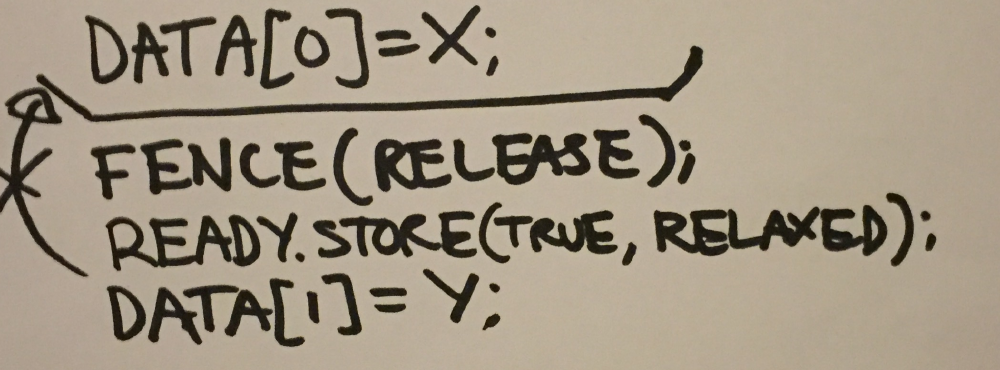 DATA[0]=X;
FENCE(RELEASE);
READY.STORE(TRUE, RELAXED);
DATA[1]=Y;